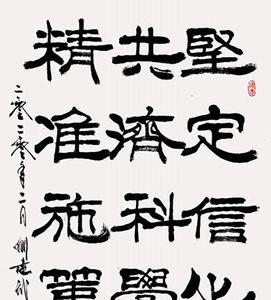 堅定信心
共濟科學
精准施策
二零二零年二月